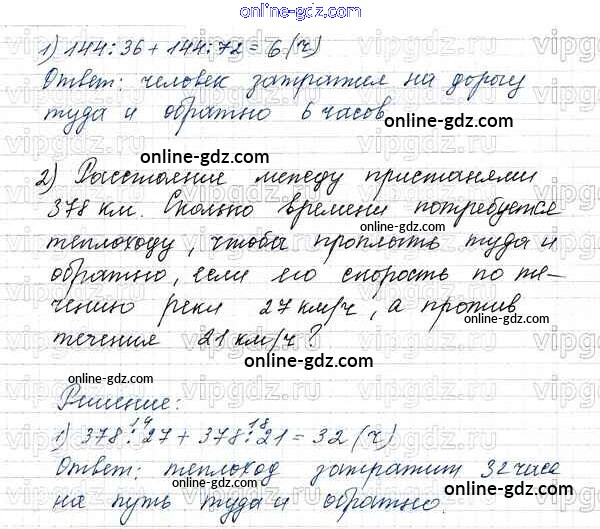 online-gdz.com
1) 144:36 + 144:72 = 6 (ч)
Ответ: человек затратил на дорогу
туда и обратно 6 часов
online-gdz.com
2) Расстояние между пристанями
378 км. Сколько времени потребуется
online-gdz.com
теплоходу, чтобы проплыть туда и
обратно, если его скорость по те-
чению реки 27 км/ч, а против
online-gdz.com
течения 21 км/ч?
online-gdz.com
online-gdz.com
Решение:
14 18
1) 378:27 + 378:21 = 32 (ч)
online-gdz.com
Ответ: теплоход затратит 32 часа
на путь туда и обратно.
online-gdz.com
vipgdz.ru